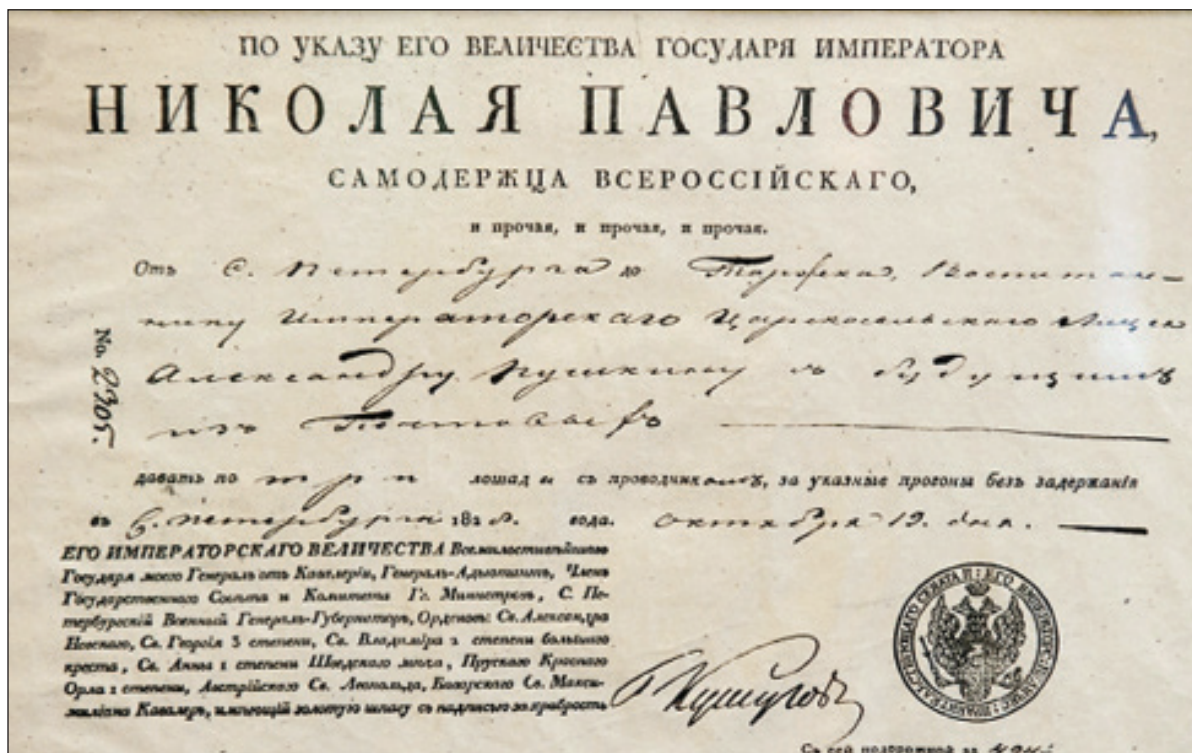 ПО УКАЗУ ЕГО ВЕЛИЧЕСТВА ГОСУДАРЯ ИМПЕРАТОРА
НИКОЛАЯ ПАВЛОВИЧА,
САМОДЕРЖЦА ВСЕРОССІЙСКАГО,
и прочая, и прочая, и прочая.
Отъ С. Петербурга до Торжка, Воспитан-
нику Императорскаго Царскосельскаго Лицея
Александру Пушкину съ будущимъ
изъ Почтовыхъ
No. 2305.
давать по три лошади съ проводникомъ, за указные прогоны безъ задержанія
въ С. Петербурги 1828. года. октября 19. дня.
ЕГО ИМПЕРАТОРСКАГО ВЕЛИЧЕСТВА Всемилостивѣйшаго
Государя моего Генералъ отъ Кавалеріи, Генералъ-Адъютантъ, Членъ
Государственнаго Совѣта и Комитета Гг. Министровъ, С. Пе-
тербургскій Военный Генералъ-Губернаторъ, Орденовъ: Св. Александра
Невскаго, Св. Георгія 3 степени, Св. Владиміра 2 степени большаго
креста, Св. Анны 1 степени Шведскаго меча, Прускаго Краснаго
Орла 2 степени, Австрійскаго Св. Леопольда, Баварскаго Св. Макси-
миліана Кавалеръ, имѣющій золотую шпагу съ надписью за храбрость
Съ сей подорожной за